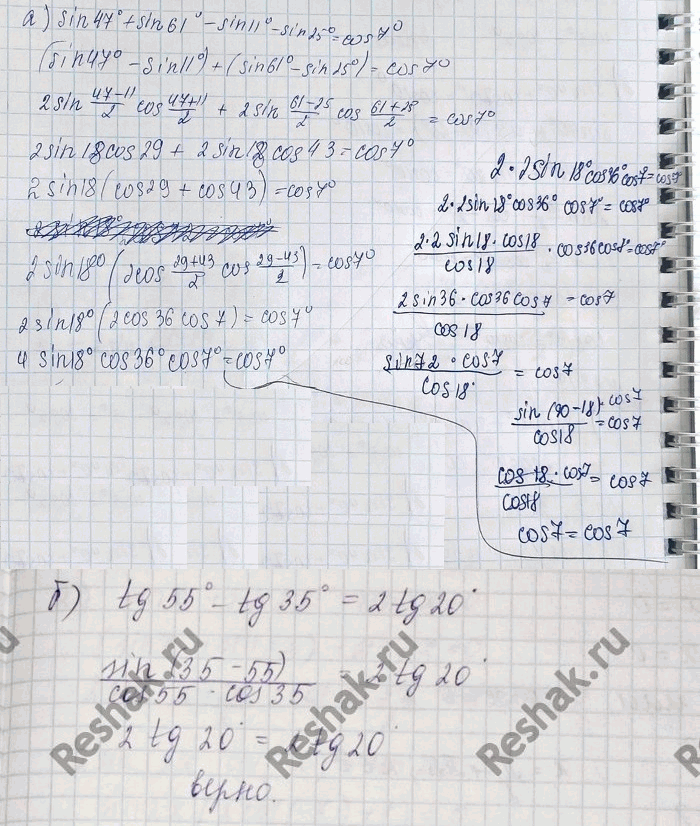 а) sin47° + sin61° - sin11° - sin25° = cos7°
(sin47° - sin11°) + (sin61° - sin25°) = cos7°
2sin (47-11)/2 cos (47+11)/2 + 2sin (61-25)/2 cos (61+25)/2 = cos7°
2sin18cos29 + 2sin18cos43 = cos7°
2sin18(cos29 + cos43) = cos7°
2sin18°(2cos (29+43)/2 cos (29-43)/2) = cos7°
2sin18°(2cos36 cos7) = cos7°
4 sin18° cos36° cos7° = cos7°
2·2sin18°cos36°cos7=cos7°
2·2sin18°cos36° cos7° = cos7°
(2·2sin18·cos18)/cos18 · cos36cos7°=cos7°
(2sin36·cos36cos7)/cos18 = cos7
(sin72·cos7)/cos18 = cos7
(sin(90-18)·cos7)/cos18 = cos7
(cos18·cos7)/cos18 = cos7
cos7 = cos7
б) tg55° - tg35° = 2tg20°
sin(35-55)/(cos55·cos35) = 2tg20°
2tg20° = 2tg20°
верно.
Reshak.ru
Reshak.ru
Reshak.ru